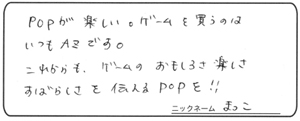 POPが楽しい。ゲームを買うのは
いつもAEです。
これからも、ゲームのおもしろさ楽しさ
すばらしさを伝えるPOPを!!
ニックネーム まっこ